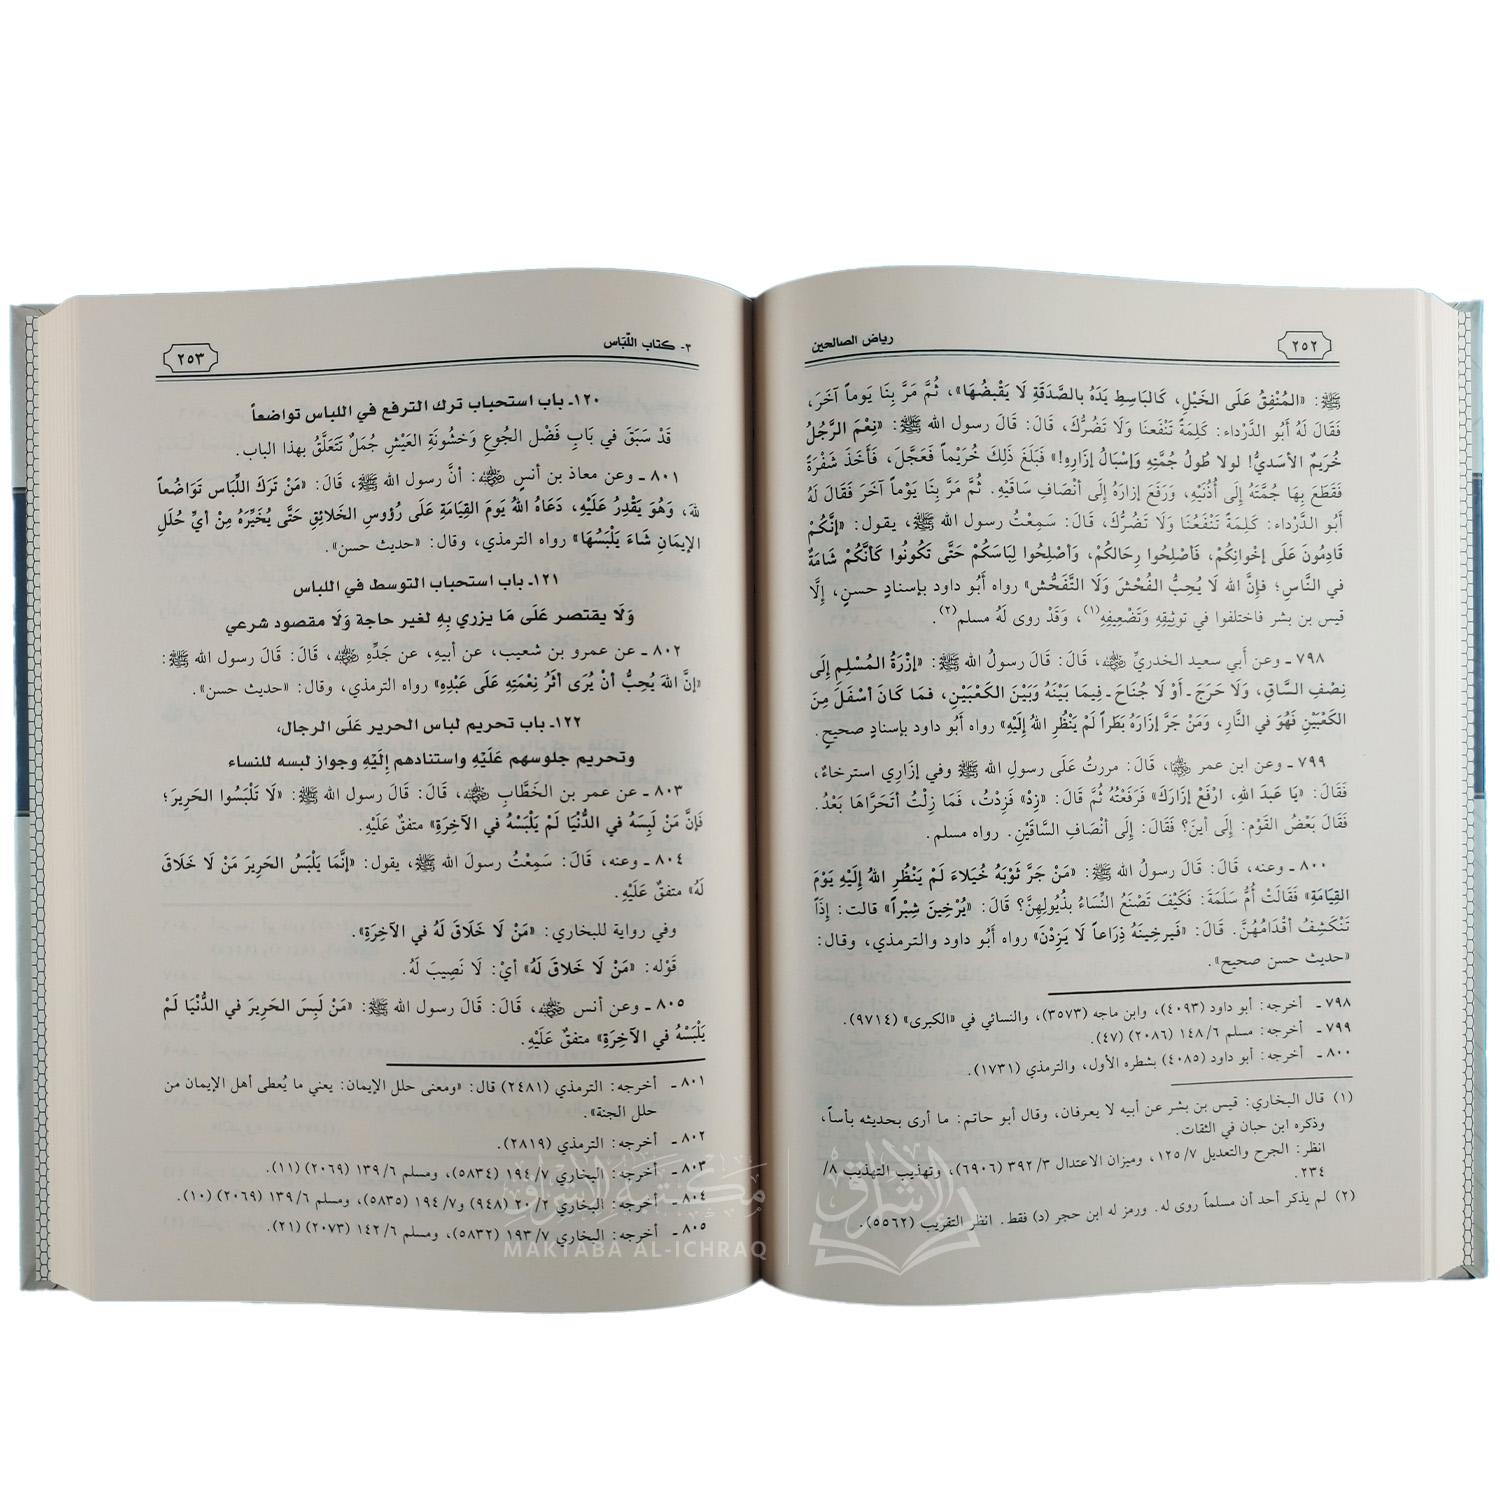 ٢٥٢
رياض الصالحين
ﷺ: «المُنْفِقُ عَلَى الخَيْلِ، كَالبَاسِطِ يَدَهُ بالصَّدَقَةِ لَا يَقْبِضُهَا»، ثُمَّ مَرَّ بِنَا يَوماً آخَرَ،
فَقَالَ لَهُ أَبُو الدَّرْداء: كَلِمَةً تَنْفَعُنَا وَلَا تَضُرُّكَ، قَالَ: قَالَ رسول الله ﷺ: «نِعْمَ الرَّجُلُ
خُرَيمٌ الأسَديُّ! لولا طُولُ جُمَّتِهِ وَإسْبَالُ إزَارِهِ!» فَبَلَغَ ذَلِكَ خُرَيْماً فَعَجَّلَ، فَأَخَذَ شَفْرَةً
فَقَطَعَ بِهَا جُمَّتَهُ إِلَى أُذُنَيْهِ، وَرَفَعَ إزارَهُ إِلَى أنْصَافِ سَاقَيْهِ. ثُمَّ مَرَّ بِنَا يَوْماً آخَرَ فَقَالَ لَهُ
أَبُو الدَّرْداء: كَلِمَةً تَنْفَعُنَا وَلَا تَضُرُّكَ، قَالَ: سَمِعْتُ رسول الله ﷺ، يقول: «إنَّكُمْ
قَادِمُونَ عَلَى إخْوانِكُمْ، فَأصْلِحُوا رِحَالكُمْ، وَأصْلِحُوا لِبَاسَكُمْ حَتَّى تَكُونُوا كَأنَّكُمْ شَامَةٌ
في النَّاسِ؛ فإنَّ الله لَا يُحِبُّ الفُحْشَ وَلَا التَّفَحُّش» رواه أَبُو داود بإسنادٍ حسنٍ، إِلَّا
قيس بن بشر فاختلفوا في توثِيقِهِ وَتَضْعِيفِهِ(١)، وَقَدْ روى لَهُ مسلم(٢).
٧٩٨ ـ وعن أَبي سعيد الخدريِّ رضي الله عنه، قَالَ: قَالَ رسولُ الله ﷺ: «إزْرَةُ المُسْلِمِ إِلَى
نِصْفِ السَّاقِ، وَلَا حَرَجَ ـ أَوْ لَا جُنَاحَ ـ فِيمَا بَيْنَهُ وَبَيْنَ الكَعْبَيْنِ، فمَا كَانَ أسْفَلَ مِنَ
الكَعْبَيْنِ فَهُوَ في النَّارِ، وَمَنْ جَرَّ إزَارَهُ بَطَراً لَمْ يَنْظُرِ اللهُ إِلَيْهِ» رواه أَبُو داود بإسنادٍ صحيحٍ.
٧٩٩ ـ وعن ابن عمر رضي الله عنهما، قَالَ: مررتُ عَلَى رسولِ الله ﷺ وفي إزَارِي استرخاءٌ،
فَقَالَ: «يَا عَبدَ اللهِ، ارْفَعْ إزَارَكَ» فَرَفَعْتُهُ ثُمَّ قَالَ: «زِدْ» فَزِدْتُ، فَمَا زِلْتُ أتَحَرَّاهَا بَعْدُ.
فَقَالَ بَعْضُ القَوْم: إِلَى أينَ؟ فَقَالَ: إِلَى أنْصَافِ السَّاقَيْنِ. رواه مسلم.
٨٠٠ ـ وعنه، قَالَ: قَالَ رسولُ الله ﷺ: «مَنْ جَرَّ ثَوْبَهُ خُيَلاءَ لَمْ يَنْظُرِ اللهُ إِلَيْهِ يَوْمَ
القِيَامَةِ» فَقَالَتْ أُمُّ سَلَمَةَ: فَكَيْفَ تَصْنَعُ النِّسَاءُ بذُيُولِهِنَّ؟ قَالَ: «يُرْخِينَ شِبْراً» قالت: إِذَاً
تَنْكَشِفُ أقْدَامُهُنَّ. قَالَ: «فَيرخِينَهُ ذِرَاعاً لَا يَزِدْنَ» رواه أَبُو داود والترمذي، وقال:
«حديث حسن صحيح».
٧٩٨ ـ أخرجه: أبو داود (٤٠٩٣)، وابن ماجه (٣٥٧٣)، والنسائي في «الكبرى» (٩٧١٤).
٧٩٩ ـ أخرجه: مسلم ١٤٨/٦ (٢٠٨٦) (٤٧).
٨٠٠ ـ أخرجه: أبو داود (٤٠٨٥) بشطره الأول، والترمذي (١٧٣١).
(١) قال البخاري: قيس بن بشر عن أبيه لا يعرفان، وقال أبو حاتم: ما أرى بحديثه بأساً،
وذكره ابن حبان في الثقات.
انظر: الجرح والتعديل ١٢٥/٧، وميزان الاعتدال ٣٩٢/٣ (٦٩٠٦)، وتهذيب التهذيب ٨/
٢٣٤.
(٢) لم يذكر أحد أن مسلماً روى له. ورمز له ابن حجر (د) فقط. انظر التقريب (٥٥٦٢).
٣- كتاب اللّبَاس
٢٥٣
١٢٠ـ باب استحباب ترك الترفع في اللباس تواضعاً
قَدْ سَبَقَ في بَابِ فَضْل الجُوعِ وَخشُونَةِ العَيْشِ جُمَلٌ تَتَعَلَّقُ بهذا الباب.
٨٠١ ـ وعن معاذ بن أنسٍ رضي الله عنه: أنَّ رسول الله ﷺ، قَالَ: «مَنْ تَرَكَ اللِّبَاس تَوَاضُعاً
للهِ، وَهُوَ يَقْدِرُ عَلَيْهِ، دَعَاهُ اللهُ يَومَ القِيَامَةِ عَلَى رُؤُوسِ الخَلائِقِ حَتَّى يُخَيِّرَهُ مِنْ أيِّ حُلَلِ
الإيمَانِ شَاءَ يَلْبَسُهَا» رواه الترمذي، وقال: «حديث حسن».
١٢١ـ باب استحباب التوسط في اللباس
وَلَا يقتصر عَلَى مَا يزري بِهِ لغير حاجة وَلَا مقصود شرعي
٨٠٢ ـ عن عمرو بن شعيب، عن أبيهِ، عن جَدِّهِ رضي الله عنه، قَالَ: قَالَ رسول الله ﷺ:
«إنَّ اللهَ يُحِبُّ أنْ يُرَى أثَرُ نِعْمَتِهِ عَلَى عَبْدِهِ» رواه الترمذي، وقال: «حديث حسن».
١٢٢ـ باب تحريم لباس الحرير عَلَى الرجال،
وتحريم جلوسهم عَلَيْهِ واستنادهم إِلَيْهِ وجواز لبسه للنساء
٨٠٣ ـ عن عمر بن الخَطَّابِ رضي الله عنه، قَالَ: قَالَ رسول الله ﷺ: «لَا تَلْبَسُوا الحَرِيرَ؛
فَإنَّ مَنْ لَبِسَهُ في الدُّنْيَا لَمْ يَلْبَسْهُ في الآخِرَةِ» متفقٌ عَلَيْهِ.
٨٠٤ ـ وعنه، قَالَ: سَمِعْتُ رسولَ الله ﷺ، يقول: «إنَّمَا يَلْبَسُ الحَرِيرَ مَنْ لَا خَلَاقَ
لَهُ» متفقٌ عَلَيْهِ.
وفي رواية للبخاري: «مَنْ لَا خَلَاقَ لَهُ في الآخِرَةِ».
قَوْله: «مَنْ لَا خَلاقَ لَهُ» أيْ: لَا نَصِيبَ لَهُ.
٨٠٥ ـ وعن أنس رضي الله عنه، قَالَ: قَالَ رسول الله ﷺ: «مَنْ لَبِسَ الحَرِيرَ في الدُّنْيَا لَمْ
يَلْبَسْهُ في الآخِرَةِ» متفقٌ عَلَيْهِ.
٨٠١ ـ أخرجه: الترمذي (٢٤٨١) قال: «ومعنى حلل الإيمان: يعني ما يُعطى أهل الإيمان من
حلل الجنة».
٨٠٢ ـ أخرجه: الترمذي (٢٨١٩).
٨٠٣ ـ أخرجه: البخاري ١٩٤/٧ (٥٨٣٤)، ومسلم ١٣٩/٦ (٢٠٦٩) (١١).
٨٠٤ ـ أخرجه: البخاري ٢٠/٢ (٩٤٨) و١٩٤/٧ (٥٨٣٥)، ومسلم ١٣٩/٦ (٢٠٦٩) (١٠).
٨٠٥ ـ أخرجه: البخاري ١٩٣/٧ (٥٨٣٢)، ومسلم ١٤٢/٦ (٢٠٧٣) (٢١).
مكتبة الإشراق
MAKTABA AL-ICHRAQ
الإشراق